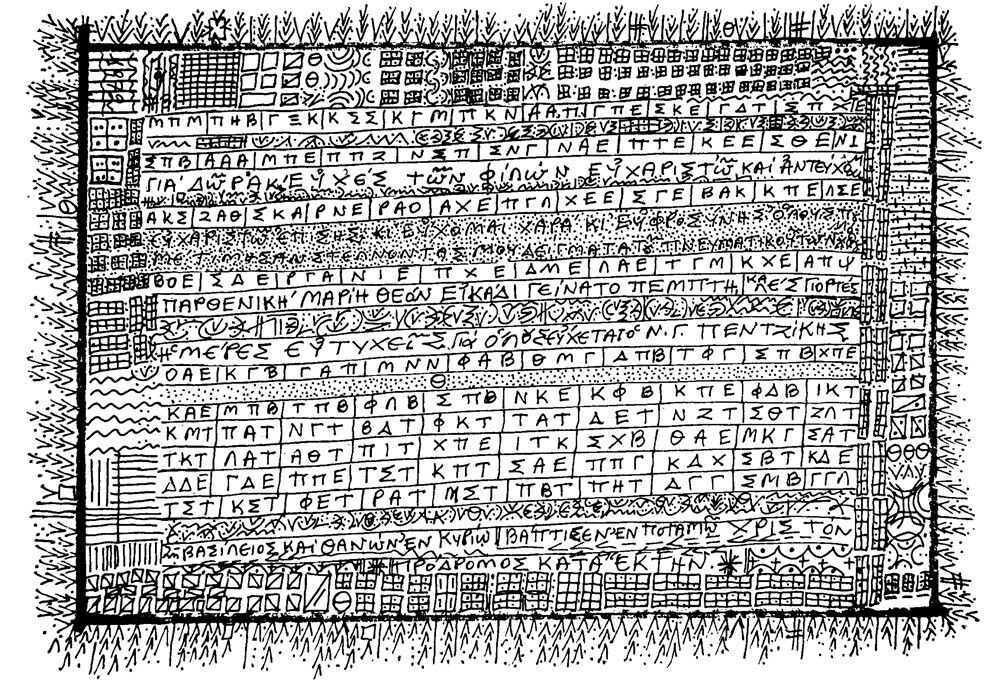 ΜΠΜ ΠΗΒ ΓΞΚ ΚΣΣ ΚΓΜ ΠΚΝ ΑΑΠ ΓΠΕ ΣΚΕ ΓΔΤ
ΣΠΒ ΑΑΑ ΜΠΕ ΠΠΖ ΝΣΠ ΣΝΓ ΝΑΕ ΠΤΕ ΚΕΕ ΣΘΕ ΝΙ
ΓΙΑ ΔῶΡΑ Κ' ΕΥΧΕΣ ΤῶΝ ΦΙΛωΝ ΕΥΧΑΡΙΣΤῶ ΚΑΙ ΑΝΤΕΥΧΟ
ΑΚΣ ΖΑΘ ΣΚΑ ΡΝΕ ΡΑΟ ΑΧΕ ΠΓΛ ΧΕΕ ΣΓΕ ΒΑΚ ΚΠΕ ΛΣΕ
ΕΥΧΑΡΙΣΤῶ ΕΠΙΣΗΣ ΚΙ ΕΥΧΟΜΑΙ ΧΑΡΑ ΚΙ ΕΥΦΡΟΣΥΝΗΣ
ΜΕ ΤΙΜΗΣΑΝ ΣΤΕΛΛΟΝΤΑΣ ΜΟΥ ΔΕΙΓΜΑΤΑ ΤΟΥ ΠΝΕΥΜΑΤΙΚΟΥ ΤωΝ
ΒΘΕ ΣΔΕ ΡΓΑ ΝΙΕ ΠΧΕ ΔΜΕ ΛΑΕ ΤΓΜ ΚΧΕ ΑΠΨ
ΠΑΡΘΕΝΙΚΗ ΜΑΡΙΗ ΘΕΟΝ ΕΙΚΑΔΙ ΓΕΙΝΑΤΟ ΠΕΜΠΤΗ ΚΑΛΕΣ ΓΙΟΡΤΕΣ
Η ΜΕΡΕΣ ΕΥΤΥΧΕΙΣ ΓΙΑ ΕΥΧΕΤΑΙ Ο Ν.Γ. ΠΕΝΤΖΙΚΗΣ
ΟΑΕ ΚΓΒ ΓΑΠ ΜΝΝ ΦΑΒ ΘΜΓ ΔΠΒ ΤΦΓ ΣΠΒ ΧΠΕ
ΚΑΕ ΜΠΒ ΤΠΒ ΦΛΒ ΣΠΒ ΝΚΕ ΚΦΒ ΚΠΕ ΦΔΒ ΙΚΤ
ΚΜΤ ΠΑΤ ΝΓΤ ΒΔΤ ΦΚΤ ΤΑΤ ΔΕΤ ΝΖΤ ΣΘΤ ΖΛΤ
ΤΚΤ ΛΑΤ ΑΘΤ ΠΙΤ ΧΠΕ ΙΤΚ ΣΧΒ ΘΑΕ ΜΚΓ ΣΑΤ
ΔΔΕ ΓΔΕ ΠΠΕ ΤΣΤ ΚΠΤ ΣΑΕ ΠΠΓ ΚΔΧ ΣΒΤ ΚΔΕ
ΤΣΤ ΚΣΤ ΦΕΤ ΡΑΤ ΜΣΤ ΠΒΤ ΠΗΤ ΔΓΓ ΣΜΒ ΓΓΛ
ΒΑΣΙΛΕΙΟΣ ΚΑΙ ΘΑΝωΝ ΕΝ ΚΥΡΙῳ ΒΑΠΤΙΣΕΝ ΕΝ ΠΟΤΑΜῶ ΧΡΙΣΤΟΝ
ΠΡΟΔΡΟΜΟΣ ΚΑΤΑ ΕΚΤΗΝ.